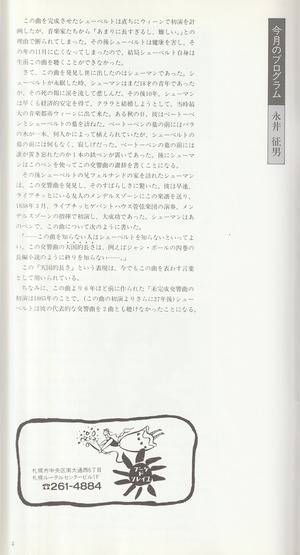 今月のプログラム
永井 征男
この曲を完成させたシューベルトは直ちにウィーンで初演を計
画したが、音楽家たちから「あまりに長すぎるし、難しい。」との
理由で断られてしまった。その後シューベルトは健康を害し、そ
の年の11月に亡くなってしまったので、結局シューベルト自身は
生前この曲を聴くことができなかった。
さて、この曲を発見し世に出したのはシューマンであった。シ
ューベルトが永眠した時、シューマンはまだ18才の青年であった
が、その死の報に涙を流して悲しんだ。その後10年、シューマン
は早くも経済的安定を得て、クララと結婚しようとして、当時最
大の音楽都市ウィーンに出て来た。ある秋の日、彼はベートーベ
ンとシューベルトの墓を訪ねた。ベートーベンの墓の前にはバラ
の木が一本、何人かによって植えられていたが、シューベルトの
墓の前には何もなく、寂しげだった。ベートーベンの墓の前には
誰が置き忘れたのか1本の鉄ペンが置いてあった。後にシューマ
ンはこのペンを使ってこの交響曲の讃辞を書くことになる。
その後シューベルトの兄フェルナンドの家を訪れたシューマン
は、この交響曲を発見し、そのすばらしさに驚いた。彼は早速、
ライプチッヒにいる友人のメンデルスゾーンにこの楽譜を送り、
1838年3月、ライプチッヒゲバントハウス管弦楽団の演奏、メン
デルスゾーンの指揮で初演し、大成功であった。シューマンはあ
のペンで、この曲について次のように書いた。
「――この曲を知らない人はシューベルトを知らないといってよ
い。この交響曲の天国的長さは、例えばジャン・ポールの四巻の
長編小説のように終りを知らない――。」
この『天国的長さ』という表現は、今でもこの曲を表わす言葉
として用いられている。
ちなみに、この曲より6年ほど前に作られた『未完成交響曲』の
初演は1865年のことで、(この曲の初演よりさらに27年後)シュー
ベルトは彼の代表的な交響曲を2曲とも聴けなかったことになる。
札幌市中央区南大通西6丁目
札幌ルーテルセンタービル1F
☎261-4884
4